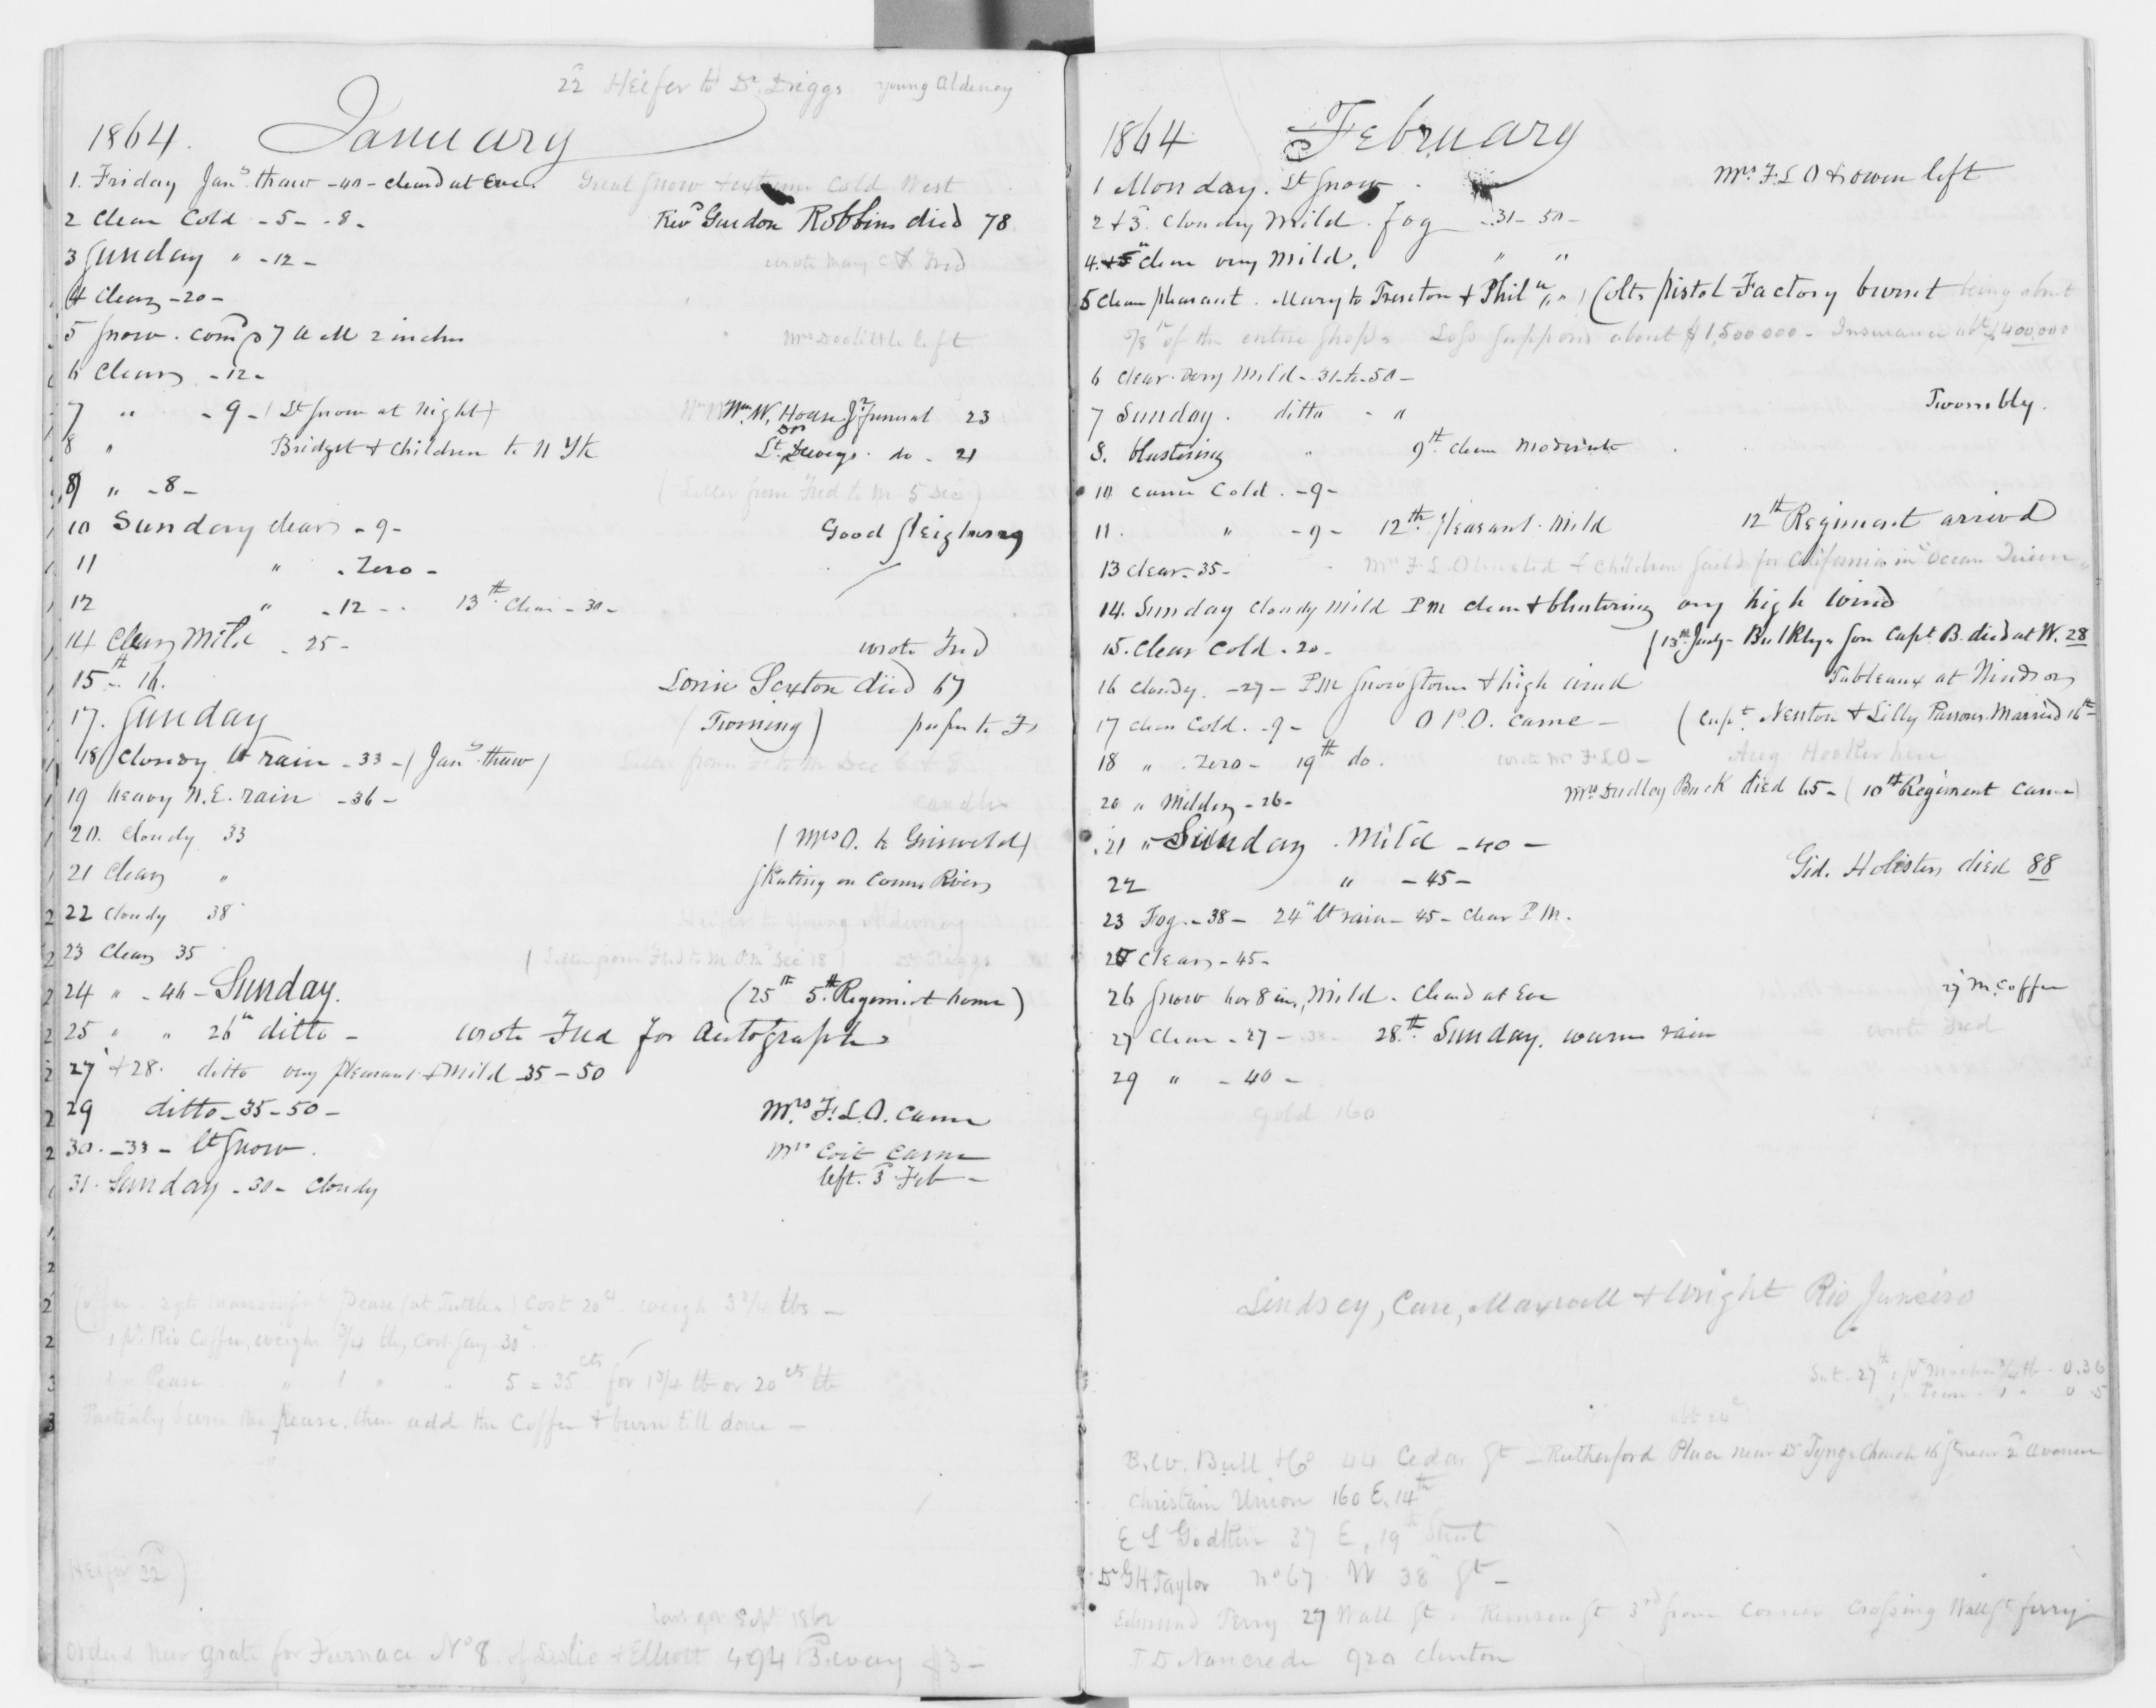 22d Heifer to Dr. Driggs young Alderney
1864. January
1. Friday Jany. thaw -40- cleard at Eve. Great snow & extreme Cold West
2 Clear Cold -5- -8- Revd Gurdon Robbins died 78
3 Sunday " -12- wrote Mary C & Fred
4 Clear -20-
5 Snow. comd 7 A M 2 inches Mrs Doolittle left
6 Clear -12-
7 " -9- (Lt Snow at Night) Wm W. House Jr funeral 23
8 " Bridget & Children to N Yk Lt. Deweys do - 21
9 " -8- (Letter from Fred to M 5 Dec)
10 Sunday clear -9- Good Sleighing
11 " - Zero -
12 " -12- - 13th Clear -30-
14 Clear Mild - 25- wrote Fred
15th - 16. Sexton died 67
17. Sunday (Twining) paper to F
18 Cloudy lt rain -33- (Jany. thaw) Letter from F to M Dec
19 heavy N.E. rain -36- candles
20. Cloudy 33 (Mrs O. to Griswold)
21 Clear " Skating on Conn. River
22 Cloudy 38 Heifer to Young Alderney
23 Clear 35 (Letter from Fred to M Dec 18) Dr Driggs
24 " -46- Sunday. (25th 5th Regiment home)
25 " " 26" ditto - wrote Fred for Autographs
27 & 28. ditto very pleasant & Mild -35-50
29 ditto -35-50- Mrs. F. L. O. came
30. -33- lt Snow. Mrs Coit came
31. Sunday -30- Cloudy left. 3 Feb -
1 pt. Rio Coffee, weighs 3/4 lb, cost say 30c
1 " Pease " 1 " " 5 = 35 cts for 1 3/4 lb or 20 cts lb
Partialy burn the pease, then add the Coffee & burn till done -
Heifer 22d)
Sept 1862
Orderd new grate for Furnace No 8. of Leslie & Elliott 494 B.way $3-
1864 February
1 Monday. Lt Snow. Mrs F. L O & owen left
2 & 3d. Cloudy Mild. fog -31-50-
4. clear very Mild. " "
5 Clear pleasant. Mary to Trenton & Phila ( Colts pistol Factory burnt being about
5/8th of the entire shops Loss supposd about $1,500 000 - Insurance abt $400,000
6 clear. very Mild -31-to-50-
7 Sunday. ditto - " Twombly.
8. blustering " 9th. Clear Moderate
10 came Cold. -9-
11. " -9- 12th. pleasant. Mild 12th Regiment arrived
13 clear -35- Mrs F. L. Olmsted & Children saild for California in "Ocean Queen"
14. Sunday Cloudy Mild P M clear & blustering very high wind
15. Clear Cold. 20 - (13th Judy Bulkleys son Capt B. died at W. 28
16 Cloudy. -27- P M Snow Storm & high wind Tableaux at Windsor
17 clear Cold. -9- O P. O. came - (Capt Newton & Lilly Parsons Married 16th
18 " . Zero - 19th do. wrote Mr F L O - Aug. Hooker here
20 " Milder -26- Mrs Dudley Buck died 65 - (10th Regiment came)
21 " Sunday. Mild -40- Gid. Holister died 88
22 " -45-
23 Fog. -38- 24" lt rain -45- Clear P M.
25 Clear -45-
26 Snow hor 8 in, Mild. Cleard at Eve 27 M. Coffee
27 Clear -27- 28th Sunday, warm rain wrote Fred
29 " -40-
Gold 160
Lindsey, Care, Maxwell & Wright Rio Janeiro
Sat. 27th 1 pt Mocha 3/4 lb - 0.36
1 " Pease - 1 " 0 5
B. W. Bull & Co 44 Cedar St - Rutherford Place near Dr Tyngs Church 16 St near 2d avenue
Christain Union 160 E. 14th
E L Godkin 37 E, 19th Street
Dr G H Taylor No 67 W 38 St -
Edmund Terry 27 Wall St. Remsen St 3rd from corner crossing Wall St ferry
T D Nancrede 920 Clinton